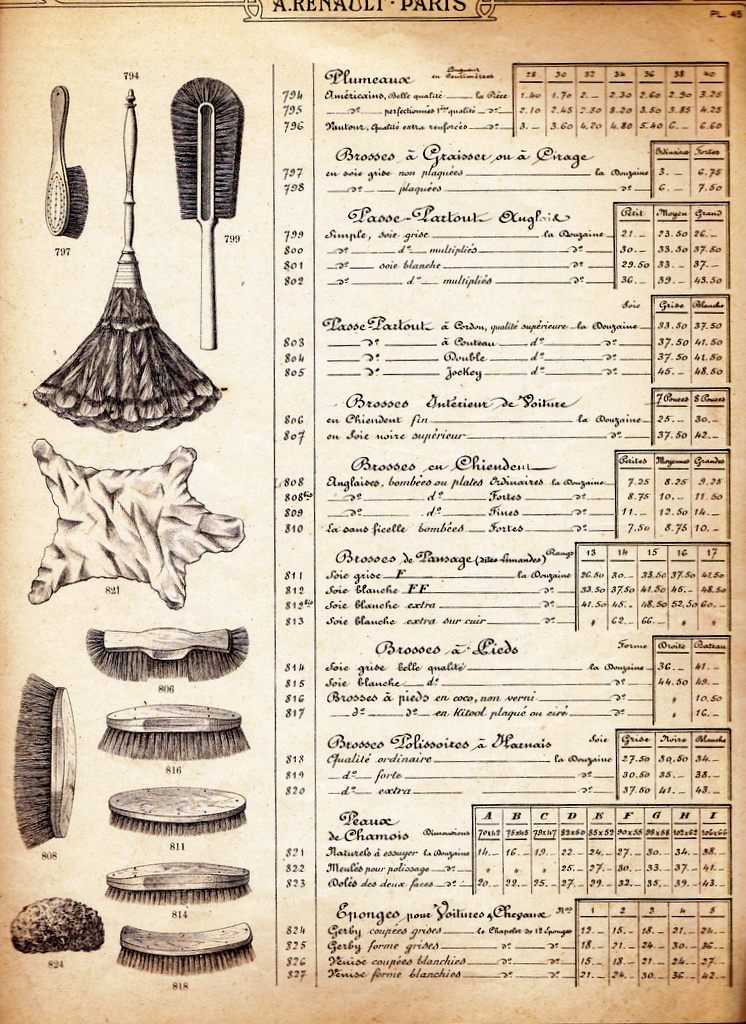 A. RENAULT · PARIS
PL. 45
794
797
799
821
806
816
808
811
814
824
818
Plumeaux Longueur en Centimètres 28 30 32 34 36 38 40
794 Américains, Belle qualité la Pièce 1.40 1.70 2._ 2.30 2.60 2.90 3.25
795 _dº_ perfectionnés 1ère qualité _dº_ 2.10 2.45 2.80 3.20 3.50 3.85 4.25
796 Vautour, Qualité extra renforcés _dº_ 3._ 3.60 4.20 4.80 5.40 6._ 6.60
Brosses à Graisser ou à Cirage Ordinaires Fortes
797 en soie grise non plaquées la Douzaine 3._ 6.75
798 _dº_ plaquées _dº_ 6._ 7.50
Passe-Partout Anglais Petit Moyen Grand
799 Simple, soie grise la Douzaine 21._ 23.50 26._
800 _dº_ dº multipliés _dº_ 30._ 33.50 37.50
801 _dº_ soie blanche _dº_ 29.50 33._ 37._
802 _dº_ dº multipliés _dº_ 36._ 39._ 43.50
Soie Grise Blanche
Passe-Partout à Cordon, qualité supérieure la Douzaine 33.50 37.50
803 _dº_ à Couteau dº _dº_ 37.50 41.50
804 _dº_ Double dº _dº_ 37.50 41.50
805 _dº_ Jockey dº _dº_ 45._ 48.50
Brosses Intérieur de Voiture 7 Pouces 8 Pouces
806 en Chiendent fin la Douzaine 25._ 30._
807 en Soie noire supérieur _dº_ 37.50 42._
Brosses en Chiendent Petites Moyennes Grandes
808 Anglaises, bombées ou plates Ordinaires la Douzaine 7.25 8.25 9.25
808bis _dº_ dº Fortes _dº_ 8.75 10._ 11.50
809 _dº_ dº Fines _dº_ 11._ 12.50 14._
810 La sans ficelle bombées Fortes _dº_ 7.50 8.75 10._
Brosses de Pansage (dites Limandes) Rangs 13 14 15 16 17
811 Soie grise F la Douzaine 26.50 30._ 33.50 37.50 41.50
812 Soie blanche FF _dº_ 33.50 37.50 41.50 45._ 48.50
812bis Soie blanche extra _dº_ 41.50 45._ 48.50 52.50 60._
813 Soie blanche extra sur cuir _dº_ " 62._ 66._ " "
Brosses à Pieds Forme Droite Bateau
814 Soie grise belle qualité la Douzaine 36._ 41._
815 Soie blanche dº _dº_ 44.50 49._
816 Brosses à pieds en coco, non verni _dº_ " 10.50
817 _dº_ dº en Kitool plaqué ou ciré _dº_ " 16._
Brosses Polissoires à Harnais Soie Grise Noire Blanche
818 Qualité ordinaire la Douzaine 27.50 30.50 34._
819 _dº_ forte _dº_ 30.50 35._ 38._
820 _dº_ extra _dº_ 37.50 41._ 43._
Peaux A B C D E F G H I
de Chamois Dimensions 70x42 75x45 79x47 82x50 85x52 90x55 98x58 102x62 106x66
821 Naturels à essuyer la Douzaine 14._ 16._ 19._ 22._ 24._ 27._ 30._ 34._ 38._
822 Meulés pour polissage _dº_ " " " 25._ 27._ 30._ 33._ 37._ 41._
823 Dolés des deux faces _dº_ 20._ 22._ 25._ 27._ 29._ 32._ 35._ 39._ 43._
Eponges pour Voitures & Chevaux Nos 1 2 3 4 5
824 Gerby coupées grises le Chapelet de 12 Eponges 12._ 15._ 18._ 21._ 24._
825 Gerby forme grises _dº_ dº 18._ 21._ 24._ 30._ 36._
826 Venise coupées blanchies _dº_ dº 15._ 18._ 21._ 24._ 27._
827 Venise forme blanchies _dº_ dº 21._ 24._ 30._ 36._ 42._